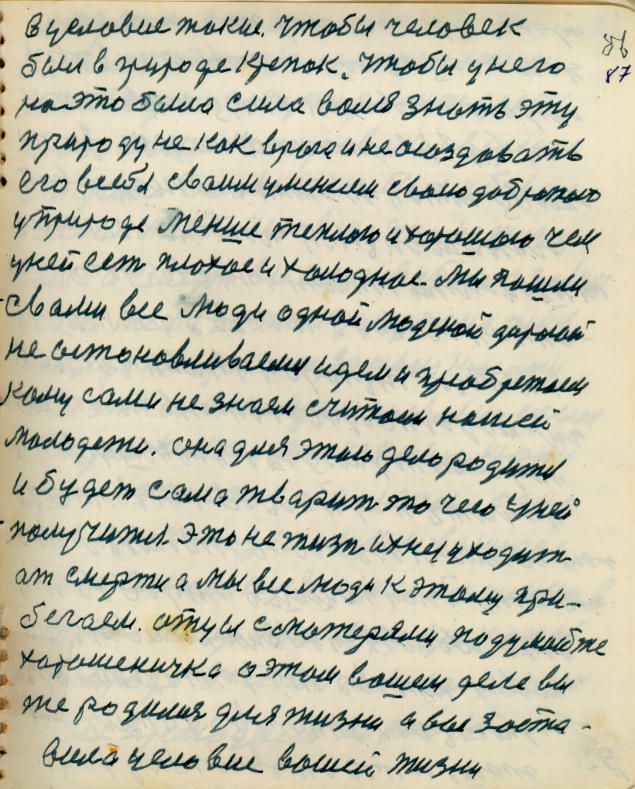 86
87
вусловие такие. Чтобы человек
был в природе крепок. Чтобы унего
на это была сила воля знать эту
природу не как врага и не создовать
его всебя своим умением
уприроде менше теплого ихорошого чем
уней сет плохое и холодное. Мы пошли
свами все люди одной людской дорогой
не остоновливаемя идем и приобретаем
кому сами не знаем считаем нашей
молодежи. она для этого дела родится
и будет сама тварит то чего уней
получится. Это не жизн их не уходит
от смерти а мы все люди к этому при-
бегаем. отцы с матерями подумайте
хорошеничка о этом вашем деле вы
же родился для жизни а вы заста-
вила условие вашей жизни